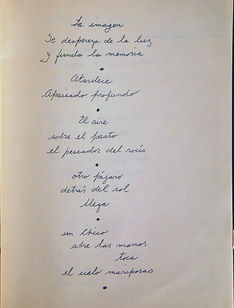 La imagen
Se despereza de la luz
y funda la memoria
Atardece
Apaisado profundo
El aire
sobre el pasto
el pescador del rocío
otro pájaro
detrás del sol
llega
un chico
abre las manos
toca
el cielo mariposas